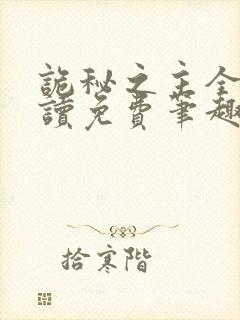 詭秘之主全
讀免費筆趣
拾寒階